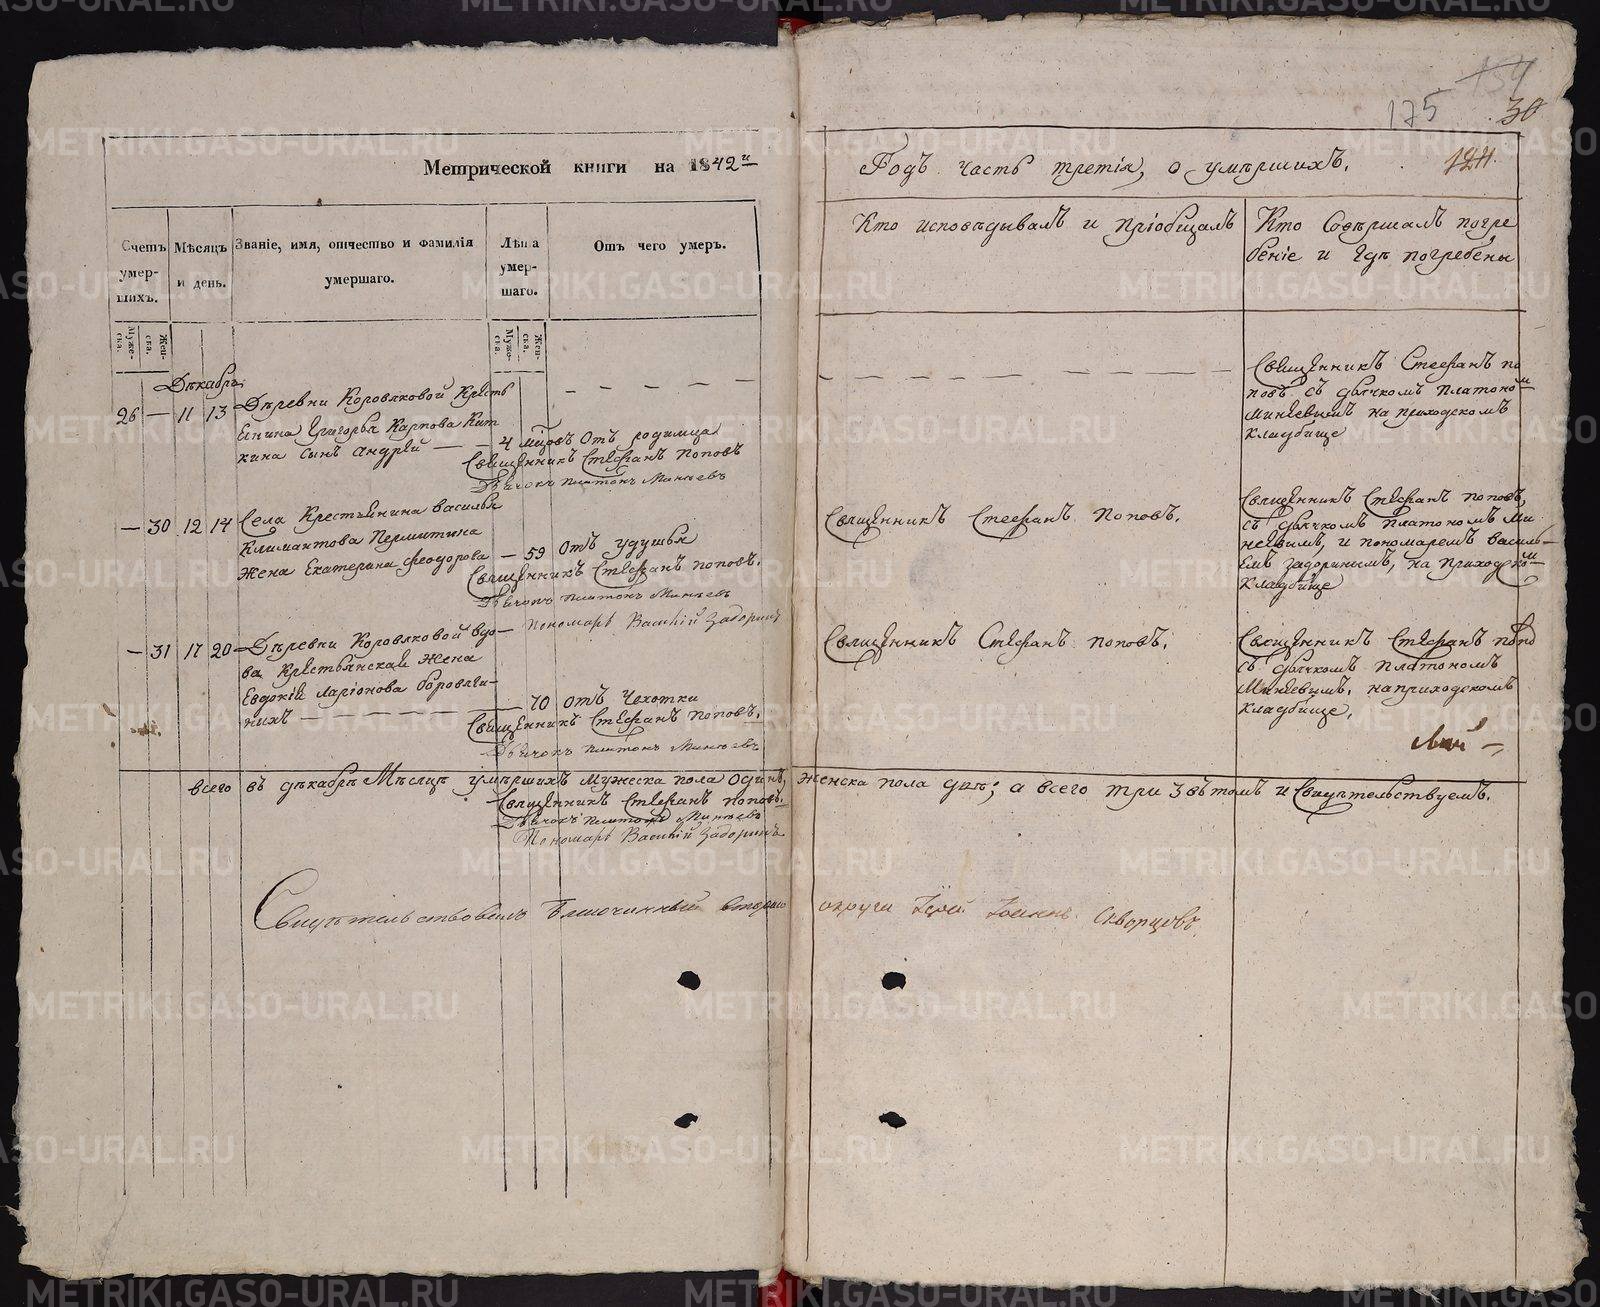 154
175 30
Метрической книги на 1842й
Годъ часть третія, о умершихъ. 124
Счетъ умер-шихъ.
Мѣсяцъ и день.
Званіе, имя, отчество и фамилія умершаго.
Лѣта умер-шаго.
Отъ чего умеръ.
Кто исповѣдывалъ и пріобщалъ
Кто Совершалъ погре
беніе и гдѣ погребены
Муже-ска.
Жен-ска.
Муже-ска.
Жен-ска.
Декабрь
26 — 11 13 Деревни Коровяковой Кресть
янина Григорья Карпова Кит
кина сынъ Андрей — 4 мѣсц. Отъ родимца
Священникъ Стефанъ Поповъ
Дьячокъ Платонъ Минѣевъ
Священникъ Стефанъ По
повъ съ дьячкомъ Платоном
Минѣевымъ на приходскомъ
кладбище
— 30 12 14 Села Крестьянина Василья
Климантова Пермитина
жена Екатерина Феодорова — 59 Отъ удушья
Священникъ Стефанъ Поповъ.
Дьячокъ Платонъ Минѣевъ
Пономарь Василій Задоринъ
Священникъ Стефанъ Поповъ.
Священникъ Стефанъ Поповъ,
съ дьячкомъ Платономъ Ми
нѣевымъ, и пономаремъ Василь-
емъ Задоринымъ, на приходском
кладбище
— 31 17 20 Деревни Коровяковой вдо-
ва Крестьянская жена
Евдокія Ларіонова Боровля-
нихъ — 70 отъ Чехотки
Священникъ Стефанъ Поповъ.
Дьячокъ Платонъ Минѣевъ
Священникъ Стефанъ Поповъ.
Священникъ Стефанъ Попо
съ дьячкомъ Платономъ
Минѣевымъ, на приходскомъ
кладбище.
всего въ декабрѣ Мѣсяцѣ умершихъ мужеска пола Одинъ, женска пола двѣ; а всего три Въ томъ и Свидѣтельствуемъ.
Священникъ Стефанъ Поповъ.
Дьячокъ Платонъ Минѣевъ
Пономарь Василій Задоринъ
Свидѣтельствовалъ Благочинный втораго округа Іерей Іоаннъ Скворцовъ.
METRIKI.GASO-URAL.RU